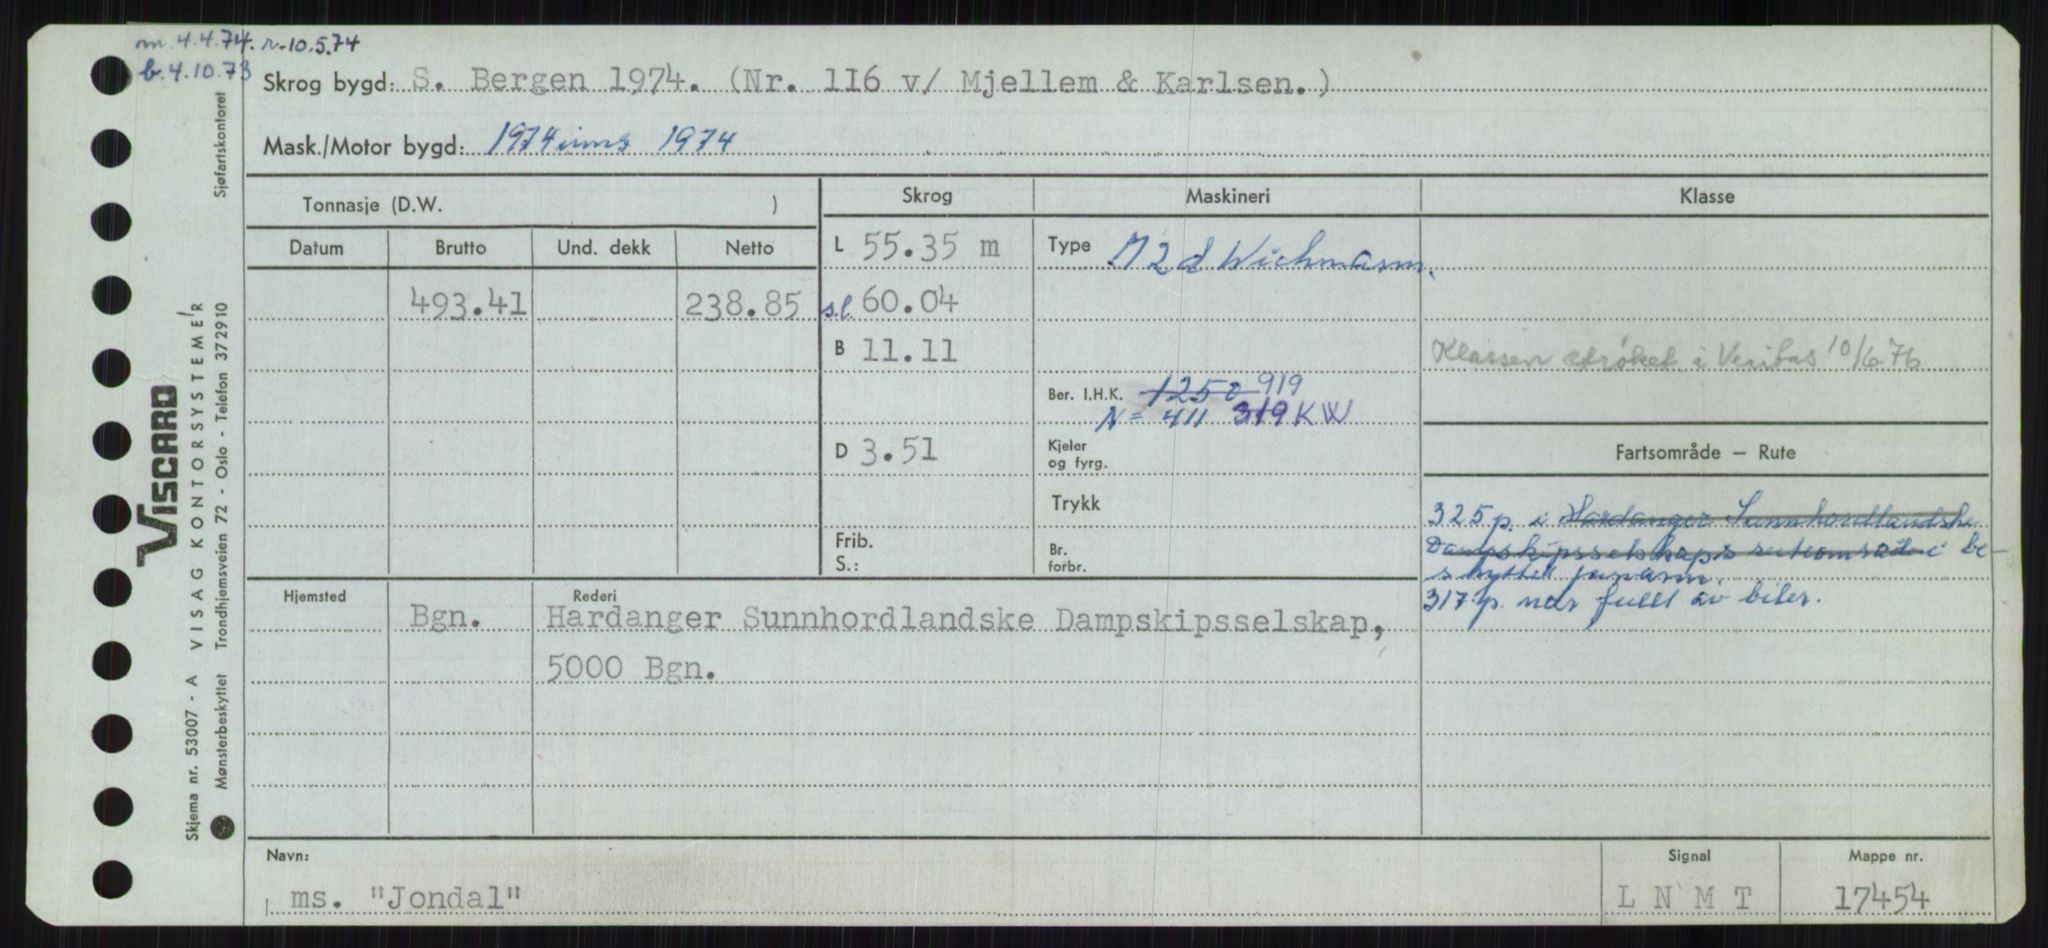 m. 4.4.74. r-10.5.74
b.4.10.73
Skrog bygd: S. Bergen 1974. (Nr. 116 v/ Mjellem & Karlsen.)
Mask./Motor bygd: 1974 inns 1974
Tonnasje (D.W. )
Skrog
Maskineri
Klasse
Datum Brutto Und. dekk Netto
L 55.35 m
Type 12 d Wichmann.
493.41 238.85
s.l. 60.04
B 11.11
Klassen strøket i Veritas 10/6 76
Ber. I.H.K. 1250 919
N = 411 319 KW
D 3.51
Kjeler
og fyrg.
Fartsområde — Rute
Trykk
325 p. i Hardanger Sunnhordlandske
Dampskipsselskaps ruteområde i be-
skyttet farvann.
317 p. når fullt av biler.
Frib.
S.:
Br.
forbr.
Hjemsted Bgn.
Rederi
Hardanger Sunnhordlandske Dampskipsselskap,
5000 Bgn.
Navn:
ms. "Jondal"
Signal
L N M T
Mappe nr.
17454
Skjema nr. 53007 - A VISAG KONTORSYSTEMER
Mønsterbeskyttet Trondhjemsveien 72 - Oslo - Telefon 372910 Sjøfartskontoret
VISCARD